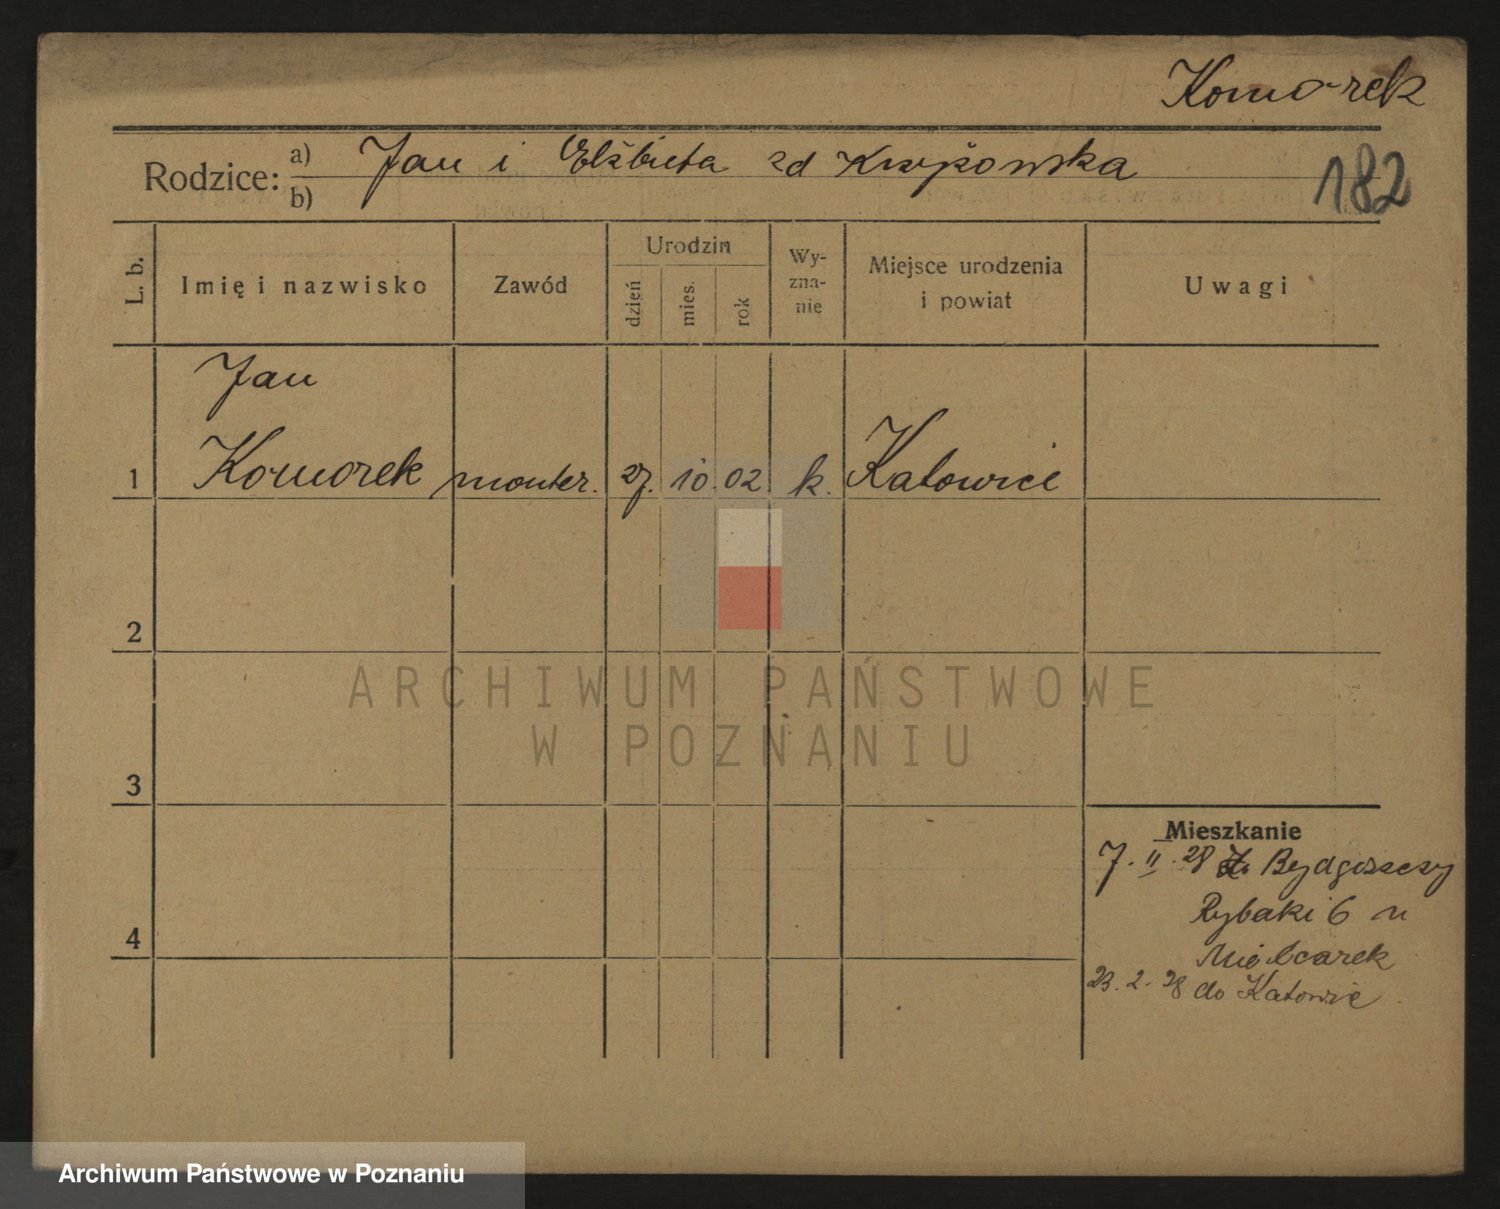 Komorek
Rodzice: a) Jan i Elżbieta zd Krzyżowska
b)
182
L. b.
Imię i nazwisko
Zawód
Urodzin
dzień
mies.
rok
Wy-
zna-
nie
Miejsce urodzenia
i powiat
Uwagi
Jan
1 Komorek monter. 27. 10. 02 k. Katowice
2
3
4
Mieszkanie
7. II. 28 z Bydgoszczy
Rybaki 6 u
Mielcarek
23. 2. 28 do Katowic
ARCHIWUM PAŃSTWOWE
W POZNANIU
Archiwum Państwowe w Poznaniu